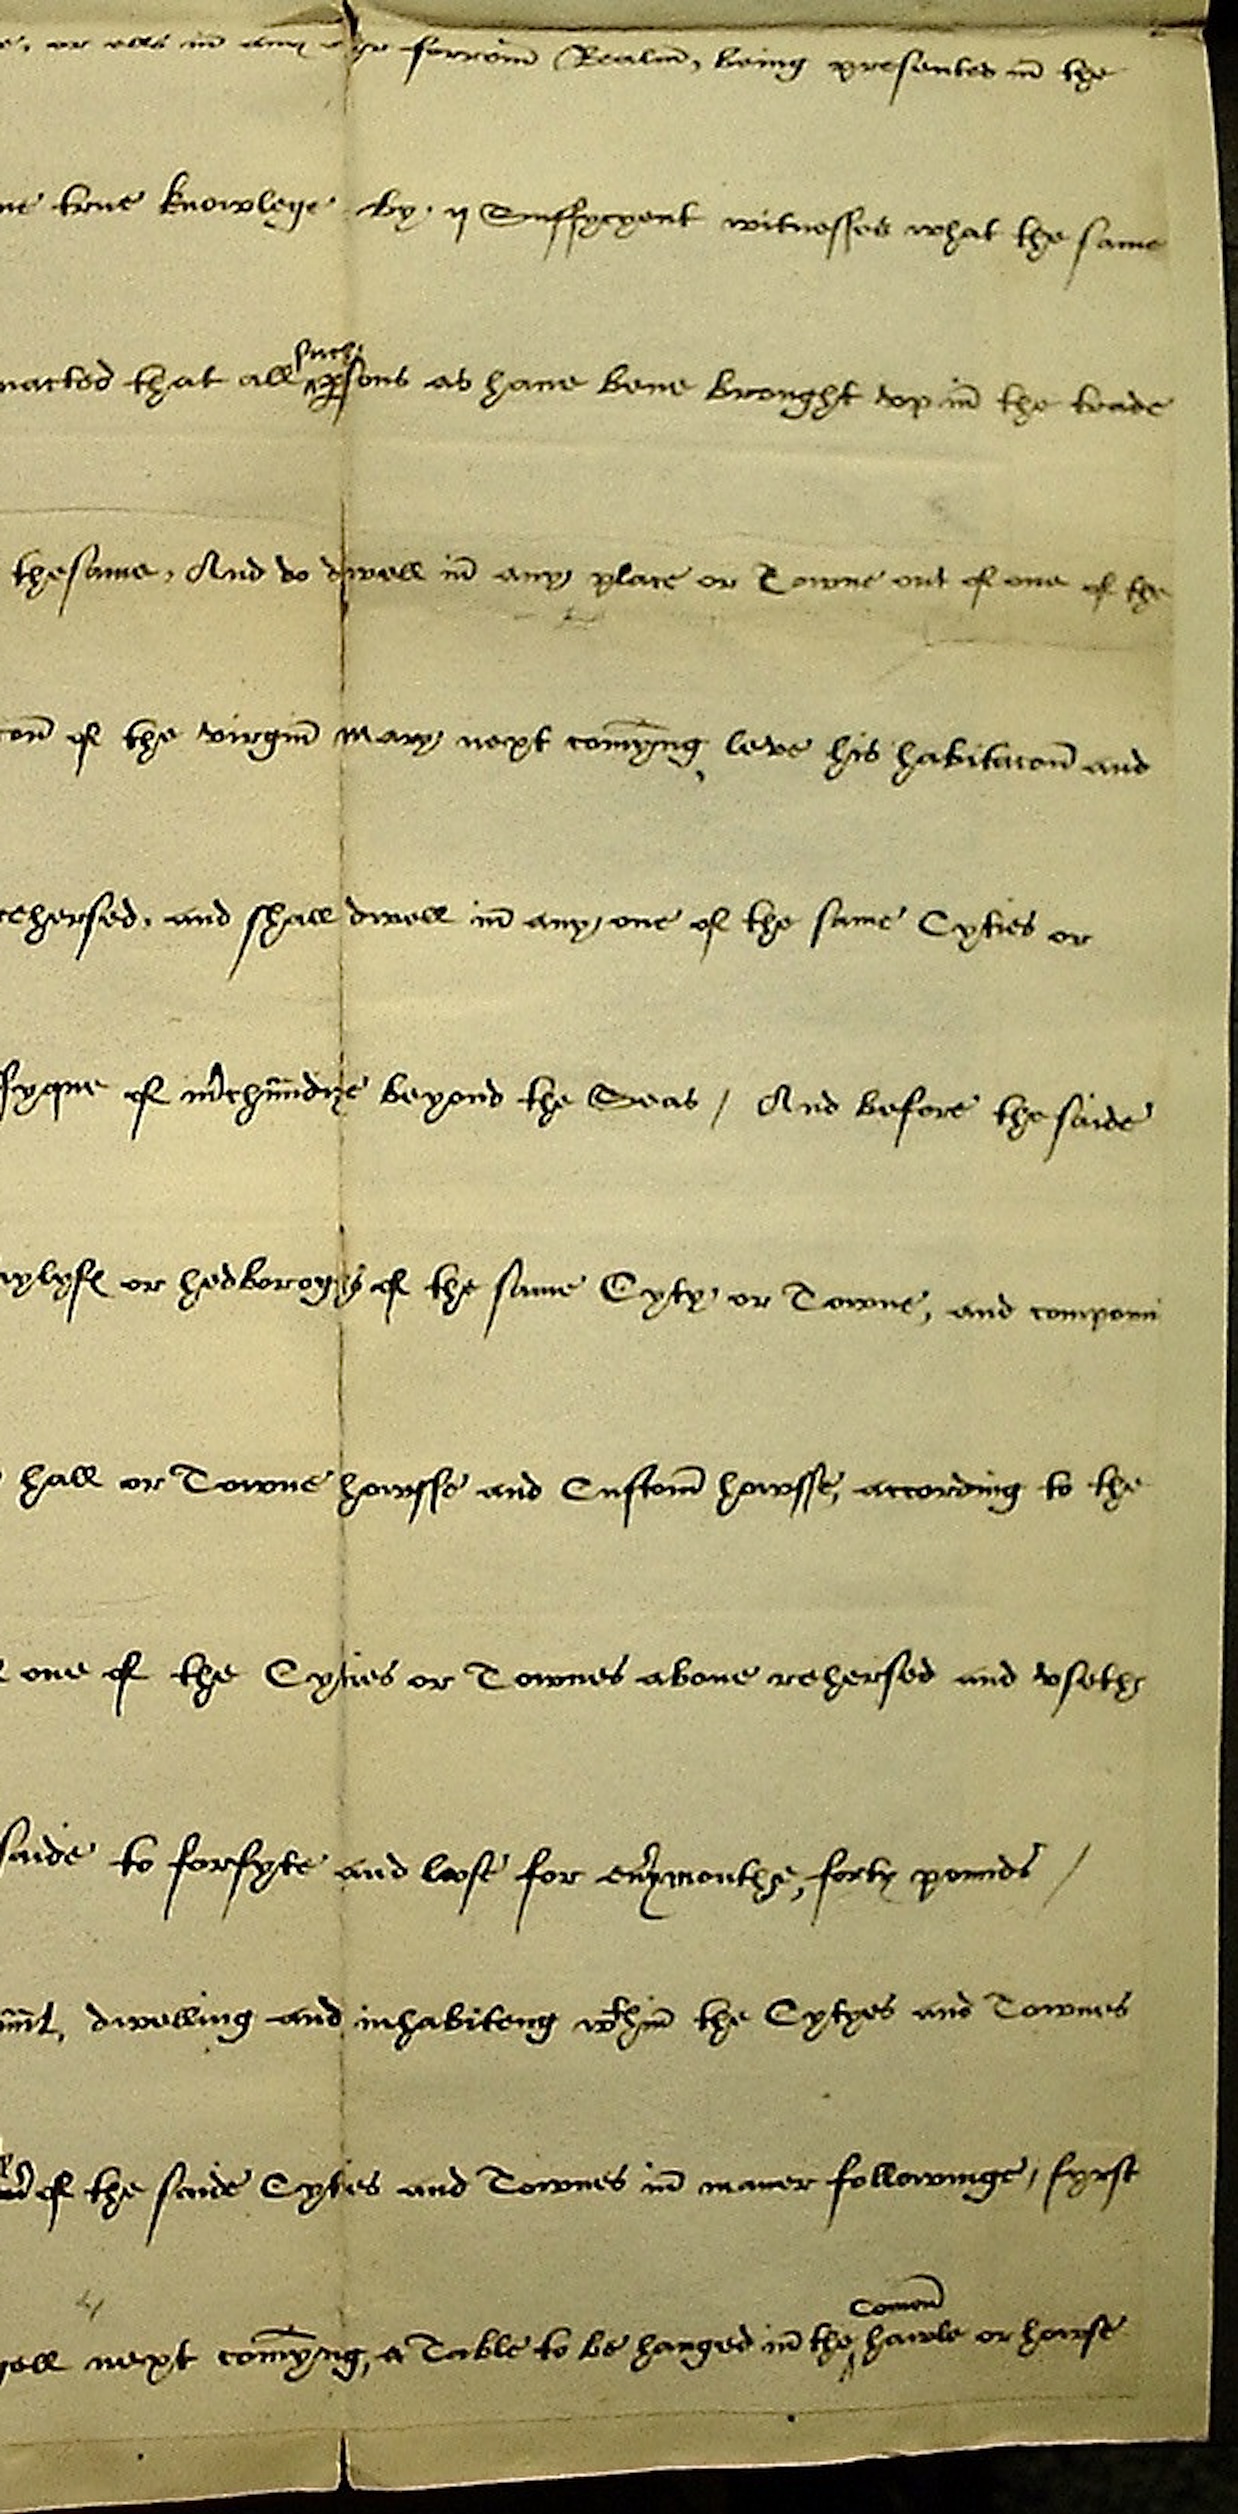 or ells in any other forrein Realm, being presented in the
true knowlege by ij Suffycyent witnesses what the same
that all such psons as haue bene brought vp in the trade
the same, And do dwell in any place or Towne out of one of the
of the virgin Mary next comyng, leve his habitacon and
rehersed, and shall dwell in any one of the same Cyties or
of mrchundyse beyond the Seas / And before the saide
or hedboroghs of the same Cyty or Towne, and
hall or Towne howsse and Custom howsse, according to the
one of the Cyties or Townes aboue rehersed and vseth
saide to forfyte and lose for euy monthe, forty pounds /
dwelling and inhabiteng wthin the Cytyes and Townes
of the saide Cyties and Townes in maner followinge, fyrst
next comyng, a Table to be hanged in the Comon hawle or howse